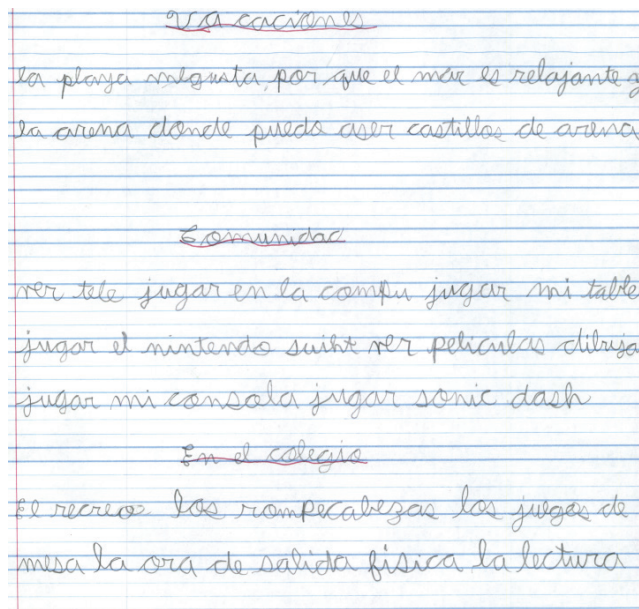 Vacaciones
la playa megusta, por que el mar es relajante y
la arena donde puedo aser castillos de arena
Comunidad
ver tele jugar en la compu jugar mi table
jugar el nintendo suiht ver peliculas dibuja
jugar mi consola jugar sonic dash
En el colegio
El recreo los rompecabezas los juegos de
mesa la ora de salida física la lectura